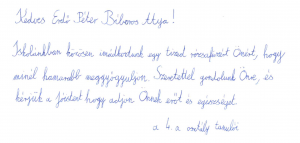 Kedves Erdő Péter Bíboros Atya!
Iskolánkban közösen imádkoztunk egy tized rózsafüzért Önért, hogy
minél hamarabb meggyógyuljon. Szeretettel gondolunk Önre, és
kérjük a Jóistent hogy adjon Önnek erőt és egészséget
a 4.a osztály tanulói